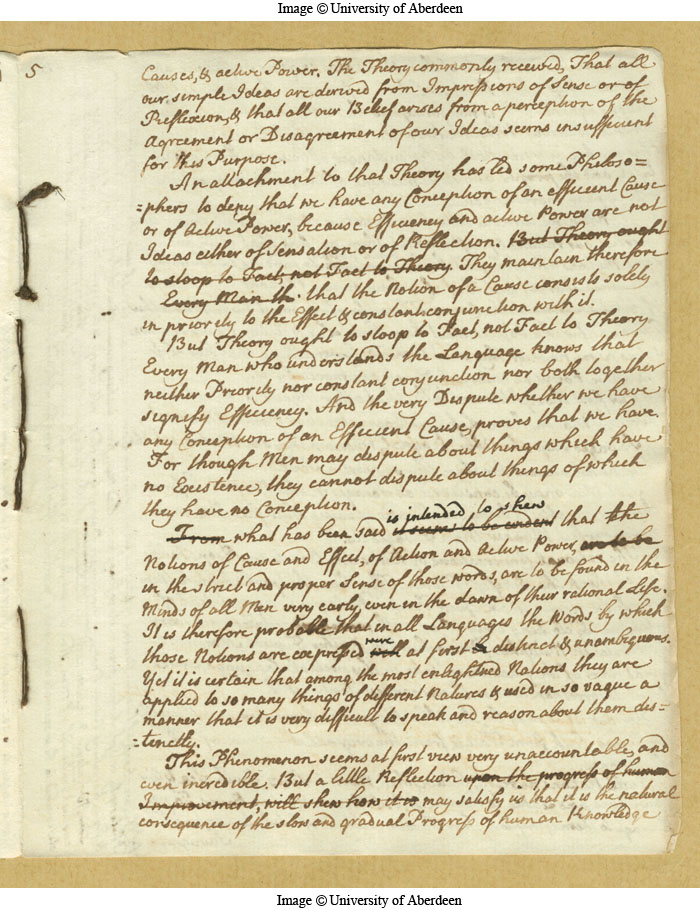 Image © University of Aberdeen
5
Causes, & active Power. The Theory commonly received, That all
our simple Ideas are derived from Impressions of Sense or of
Reflexion, & that all our Belief arises from a perception of the
Agreement or Disagreement of our Ideas seems insufficient
for this Purpose.
An attachment to that Theory has led some Philoso=
=phers to deny that we have any Conception of an efficient Cause
or of Active Power, because Efficiency and active Power are not
Ideas either of Sensation or of Reflection. But Theory ought
to stoop to Fact, not Fact to Theory. They maintain therefore
Every Man th. that the Notion of a Cause consists solely
in priority to the Effect & constant conjunction with it.
But Theory ought to stoop to Fact, not Fact to Theory
Every Man who understands the Language knows that
neither Priority nor constant conjunction nor both together
signify Efficiency. And the very Dispute whether we have
any Conception of an Efficient Cause, proves that we have.
For though Men may dispute about things which have
no Existence, they cannot dispute about things of which
they have no Conception.
is intended to shew
From what has been said it seems to be evident that the
Notions of Cause and Effect, of Action and Active Power, are to be
in the strict and proper Sense of those words, are to be found in the
Minds of all Men very early, even in the dawn of their rational Life.
It is therefore probable that in all Languages the Words by which
were
those Notions are expressed at first distinct & unambiguous.
Yet it is certain that among the most enlightned Nations they are
applied to so many things of different Natures & used in so vague a
manner that it is very difficult to speak and reason about them dis=
=tinctly.
This Phenomenon seems at first view very unaccountable, and
even incredible. But a little Reflection upon the progress of human
Improvement, will shew how it is may satisfy is that it is the natural
consequence of the slow and gradual Progress of human Knowledge
Image © University of Aberdeen